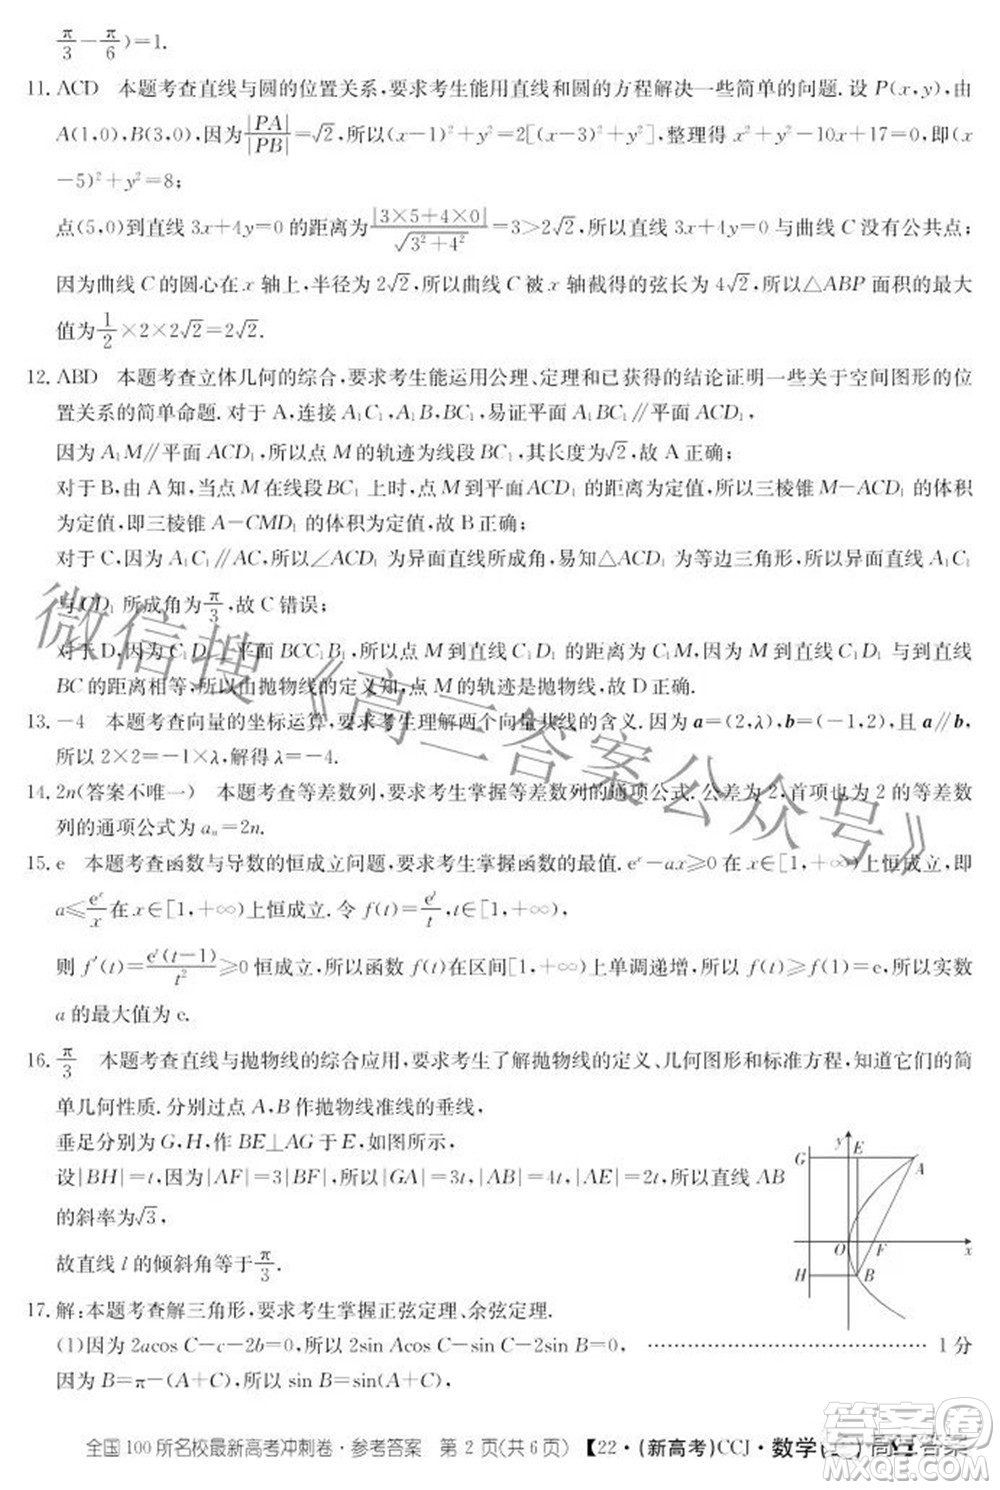 π/3 − π/6)=1.
11. ACD　本题考查直线与圆的位置关系,要求考生能用直线和圆的方程解决一些简单的问题. 设 P(x,y),由
A(1,0),B(3,0),因为|PA|/|PB|=√2,所以(x−1)²+y²=2[(x−3)²+y²],整理得 x²+y²−10x+17=0,即(x
−5)²+y²=8;
点(5,0)到直线 3x+4y=0 的距离为|3×5+4×0|/√(3²+4²)=3>2√2,所以直线 3x+4y=0 与曲线 C 没有公共点;
因为曲线 C 的圆心在 x 轴上,半径为 2√2,所以曲线 C 被 x 轴截得的弦长为 4√2,所以△ABP 面积的最大
值为1/2×2×2√2=2√2.
12. ABD　本题考查立体几何的综合,要求考生能运用公理、定理和已获得的结论证明一些关于空间图形的位
置关系的简单命题. 对于 A,连接 A₁C₁,A₁B,BC₁,易证平面 A₁BC₁∥平面 ACD₁,
因为 A₁M∥平面 ACD₁,所以点 M 的轨迹为线段 BC₁,所以长度为√2,故 A 正确;
对于 B,由 A 知,当点 M 在线段BC₁ 上时,点 M 到平面ACD₁ 的距离为定值,所以三棱锥 M−ACD₁ 的体积
为定值,即三棱锥 A−CMD₁ 的体积为定值,故 B 正确;
对于 C,因为 A₁C₁∥AC,所以∠ACD₁ 为异面直线所成角,易知△ACD₁ 为等边三角形,所以直线 A₁C₁
与CD₁ 所成角为π/3,故 C 错误;
对于 D,因为 C₁D₁⊥平面 BCC₁B₁,所以点 M 到直线 C₁D₁ 的距离为 C₁M,所以点 M 到直线 C₁D₁ 与直线
BC 的距离相等,所以由抛物线的定义知,点 M 的轨迹是抛物线,故 D 正确.
13. −4　本题考查向量的坐标运算,要求考生理解两个向量共线的含义. 因为 a=(2,λ),b=(−1,2),且 a∥b,
所以 2×2=−1×λ,解得 λ=−4.
14. 2n(答案不唯一)　本题考查等差数列,要求考生掌握等差数列的通项公式. 公差为 2,首项也为 2 的等差数
列的通项公式为 aₙ=2n.
15. e　本题考查函数与导数的恒成立问题,要求考生掌握函数的最值. eˣ−ax≥0 在 x∈[1,+∞)上恒成立,即
a≤eˣ/x在 x∈[1,+∞)上恒成立. 令 f(t)=eᵗ/t,t∈[1,+∞),
则 f′(t)=eᵗ(t−1)/t²≥0 恒成立,所以函数 f(t)在区间[1,+∞)上单调递增,所以 f(t)≥f(1)=e,所以实数
a 的最大值为 e.
16. π/3　本题考查直线与抛物线的综合应用,要求考生了解抛物线的定义、几何图形和标准方程,知道它们的简
单几何性质. 分别过点 A,B 作抛物线准线的垂线,
垂足分别为 G,H,作 BE⊥AG 于 E,如图所示,
设|BH|=t,因为|AF|=3|BF|,所以|GA|=3t,|AB|=4t,|AE|=2t,所以直线 AB
的斜率为√3,
故直线 l 的倾斜角等于π/3.
G E A y
O F x
H B
17. 解:本题考查解三角形,要求考生掌握正弦定理、余弦定理.
(1)因为 2acos C−c−2b=0,所以 2sin Acos C−sin C−2sin B=0, ………………………………… 1 分
因为 B=π−(A+C),所以 sin B=sin(A+C),
全国 100 所名校最新高考冲刺卷·参考答案　第 2 页(共 6 页)　【22·(新高考)CCJ·数学(二)
微信搜《高三答案公众号》